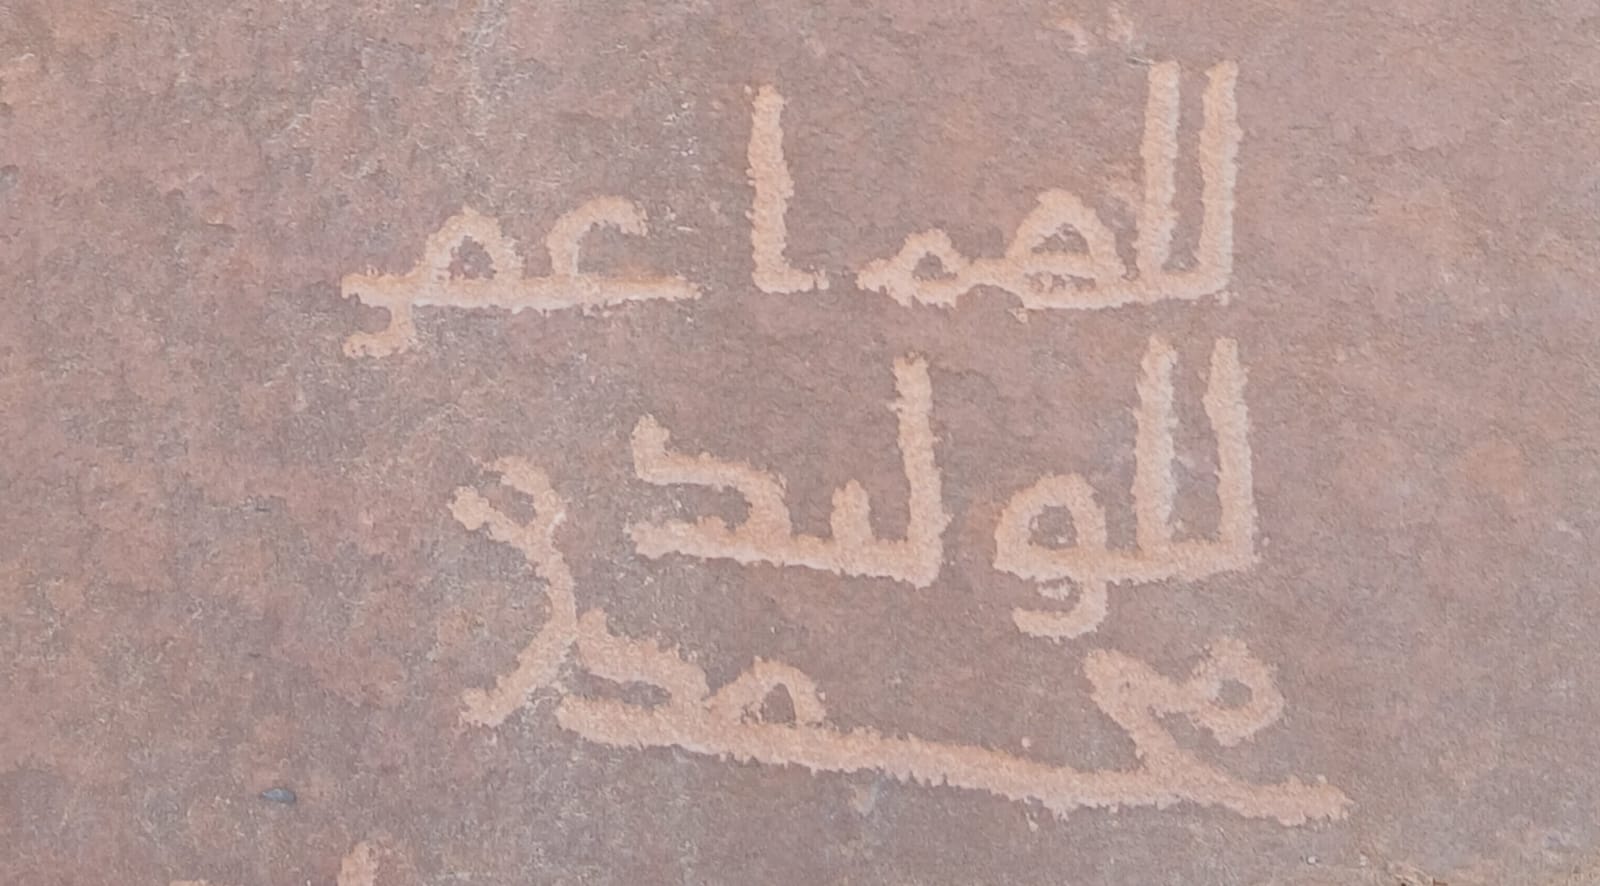 للهم اغفر
للوليد بن
محمد